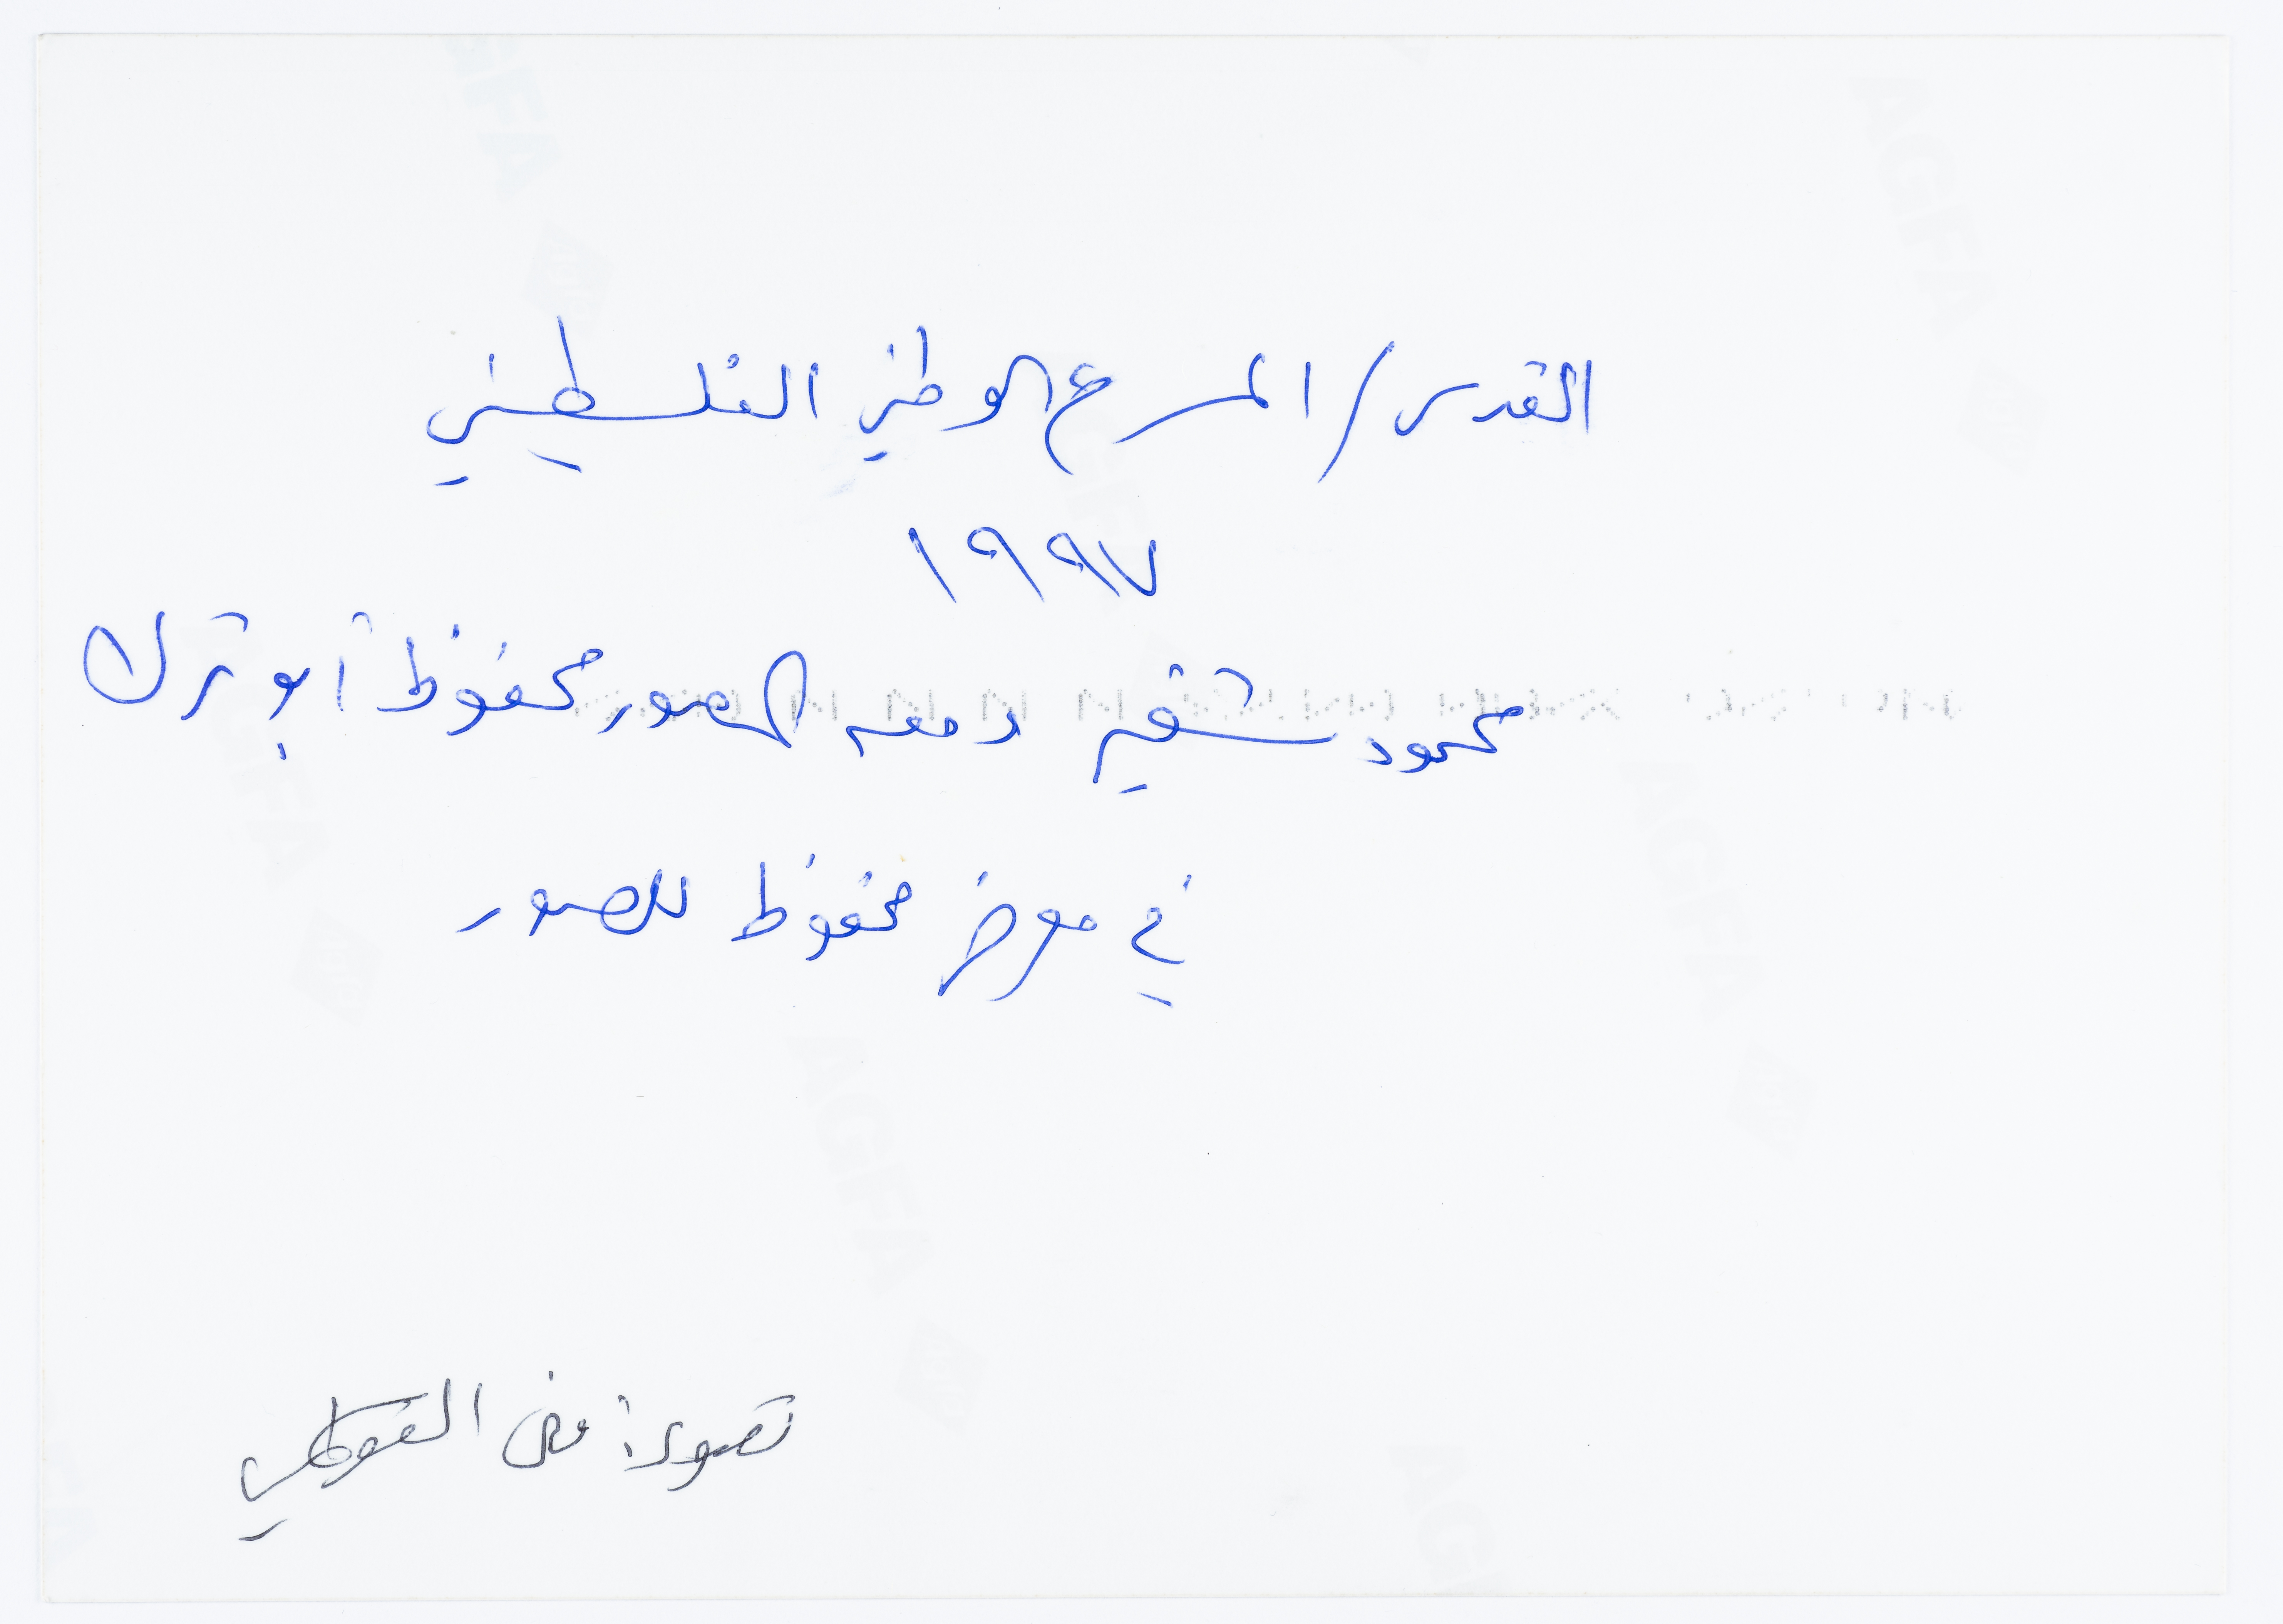 القدس/المسرح الوطني الفلسطيني
١٩٩٧
محمود شقير ومعه المصور محفوظ أبو ترك
في معرض محفوظ للصور
تصوير:
AGFA